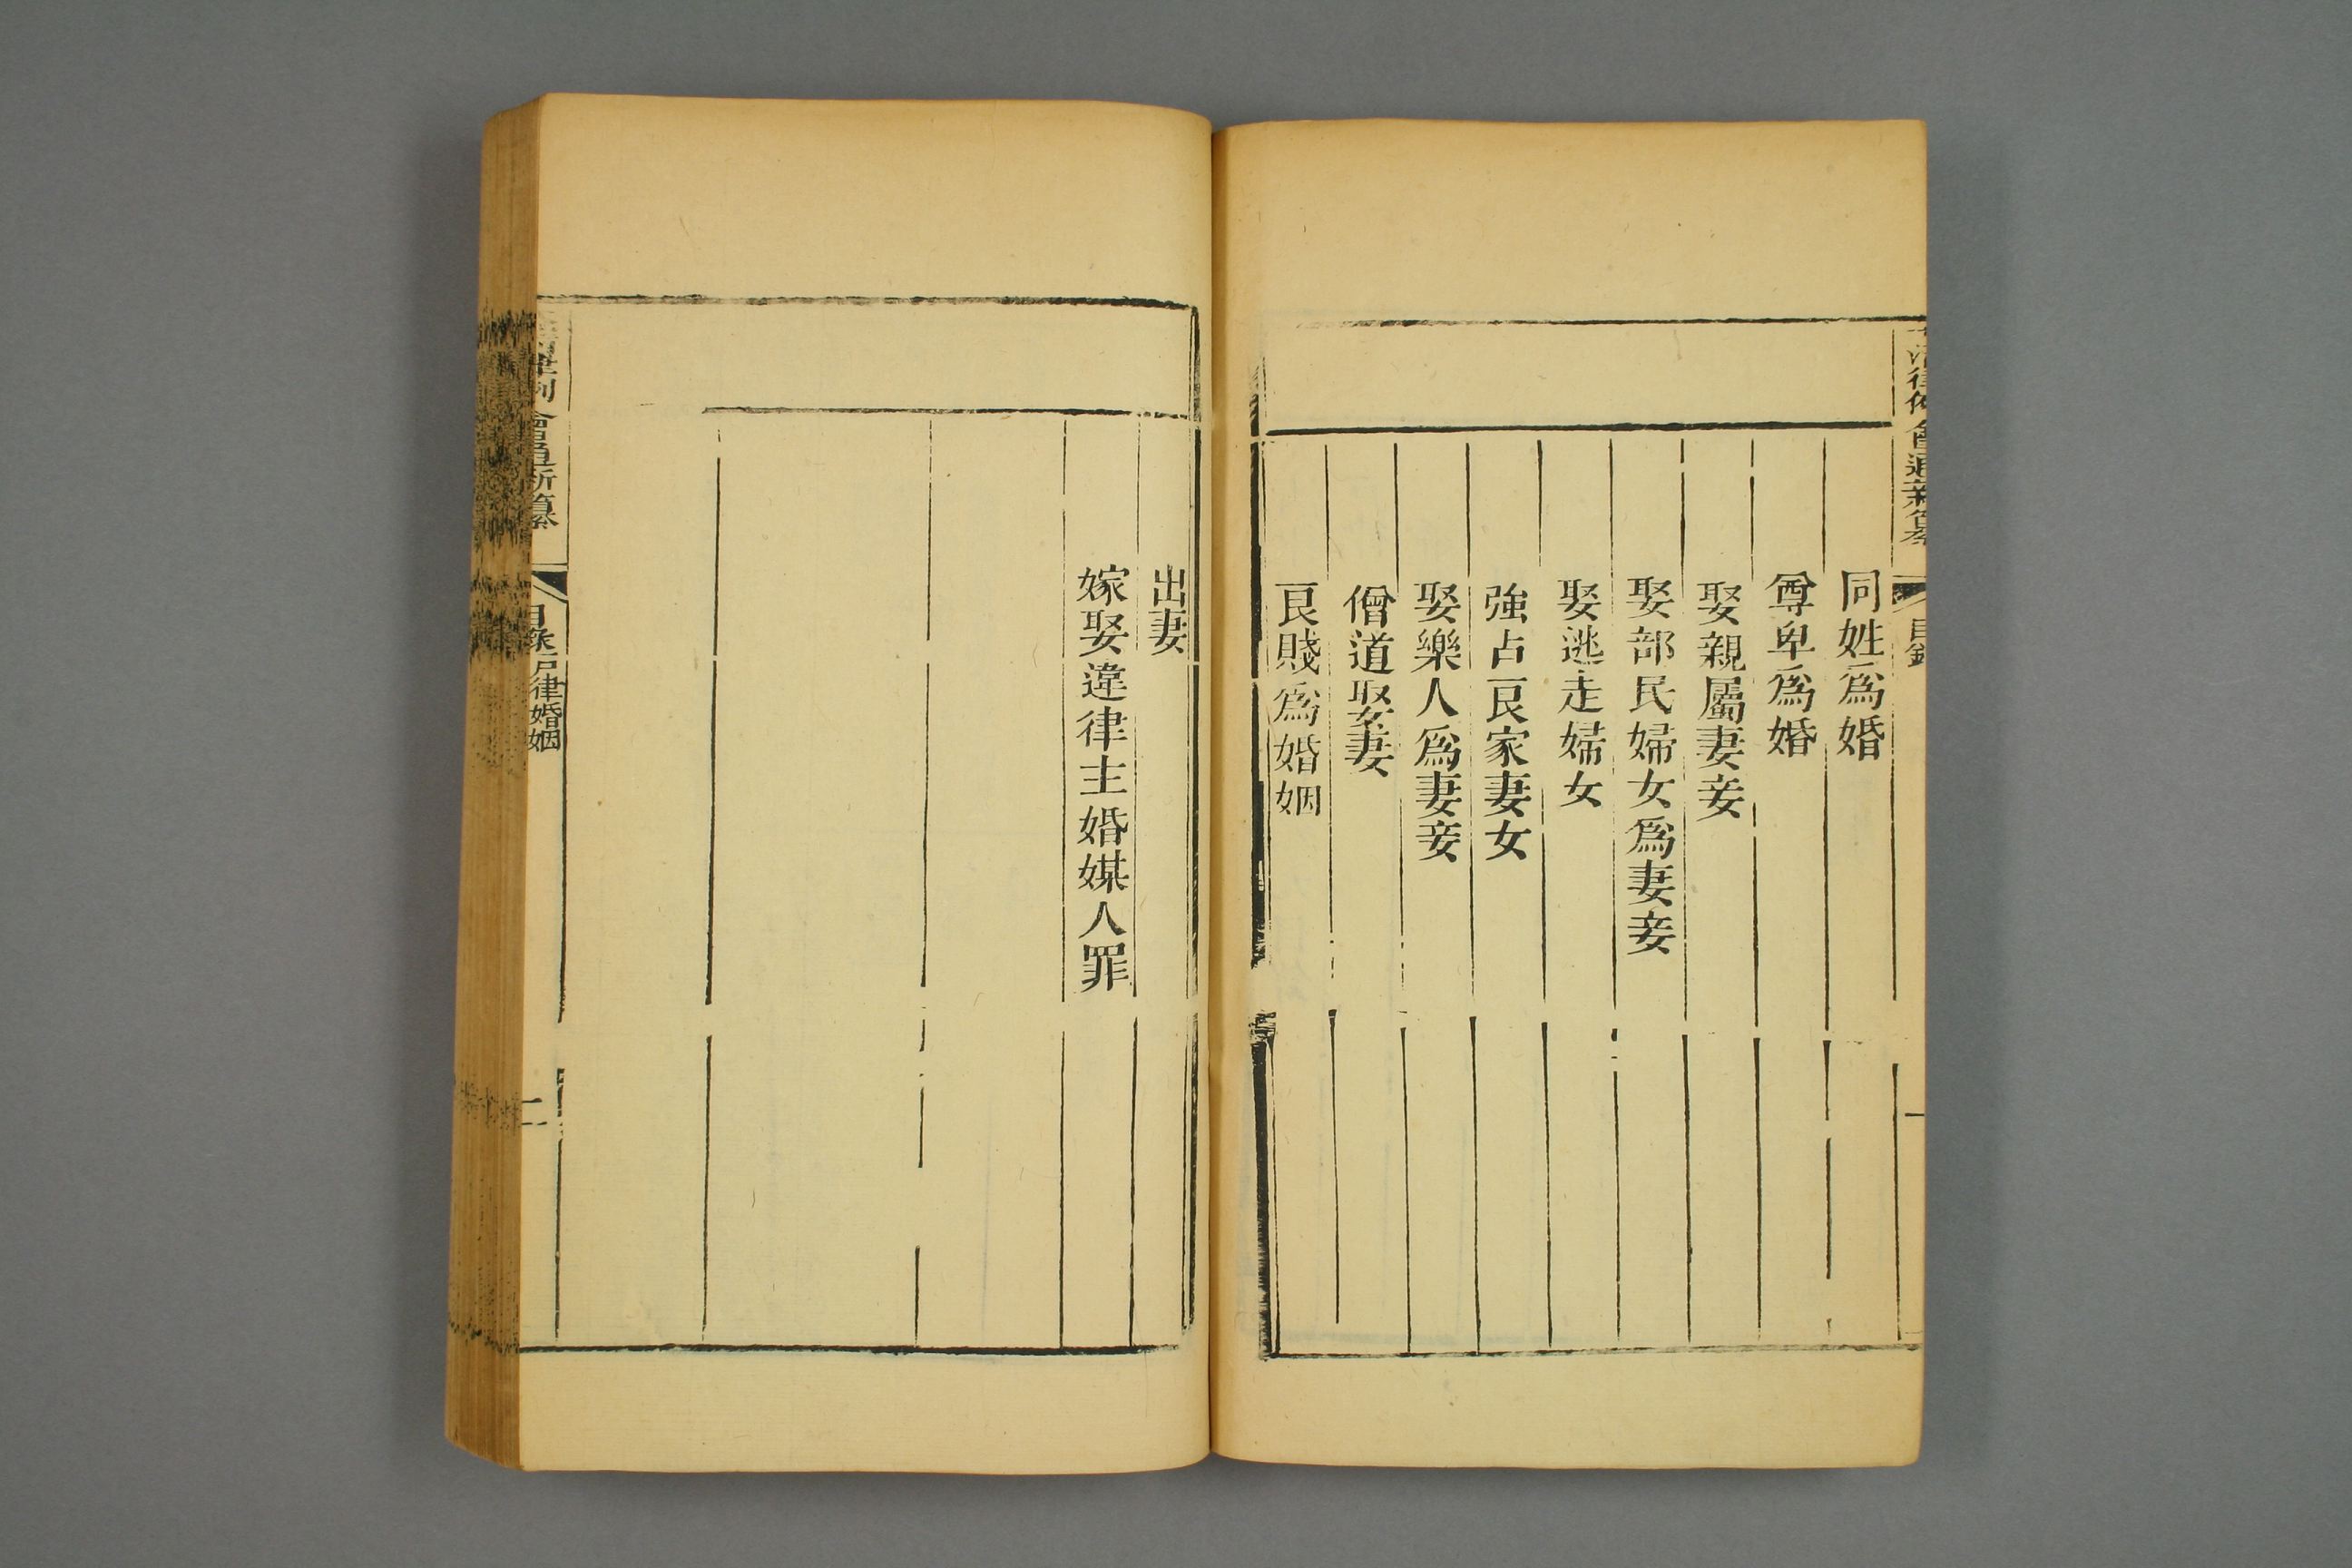 大清律例會通新纂
目錄
一
同姓爲婚
尊卑爲婚
娶親屬妻妾
娶部民婦女爲妻妾
娶逃走婦女
強占良家妻女
娶樂人爲妻妾
僧道娶妻
良賤爲婚姻
出妻
嫁娶違律主婚媒人罪
律例會通新纂
目錄 戸律婚姻
二